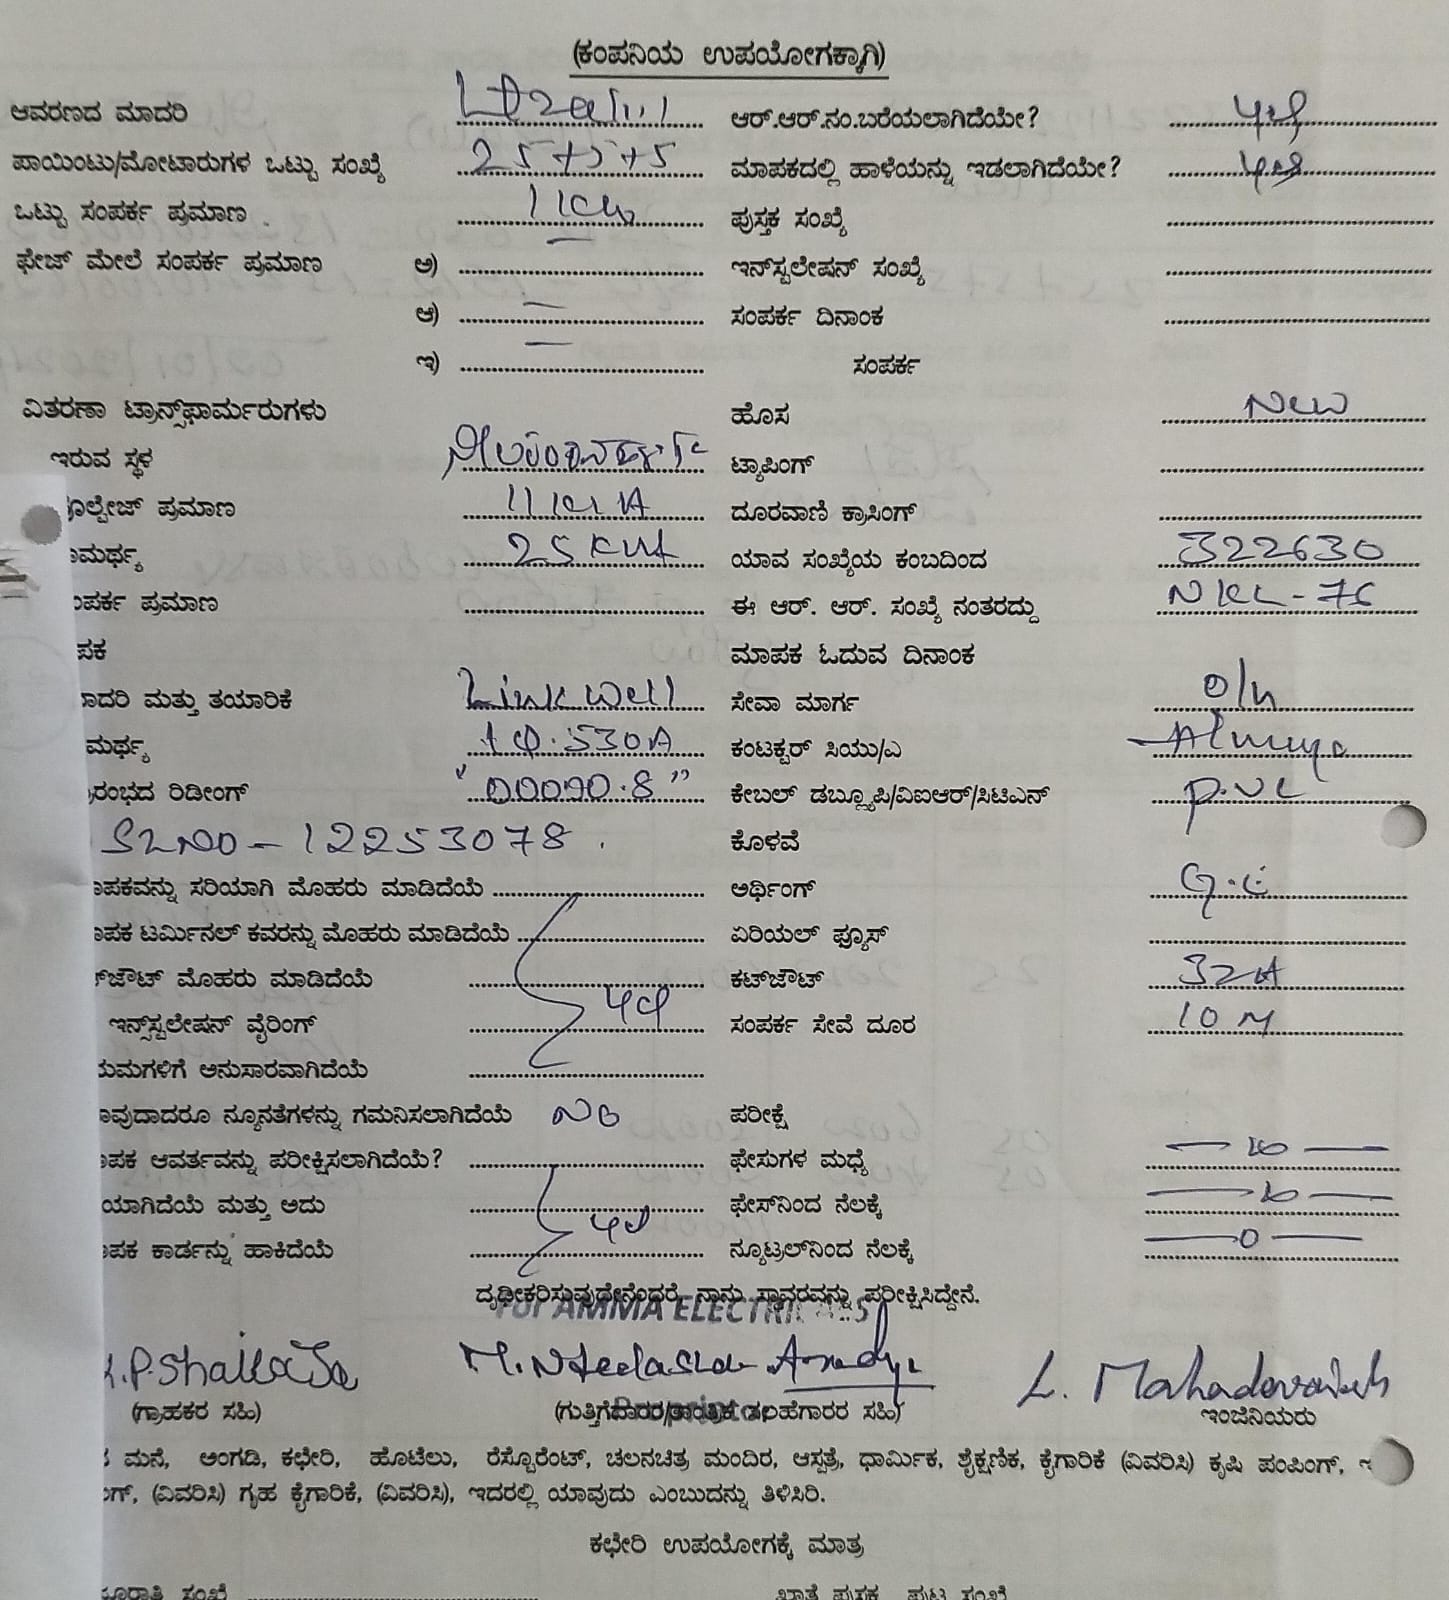 (ಕಂಪನಿಯ ಉಪಯೋಗಕ್ಕಾಗಿ)
ಆವರಣದ ಮಾದರಿ ಆರ್.ಆರ್.ನಂ.ಬರೆಯಲಾಗಿದೆಯೇ?
ಪಾಯಿಂಟು/ಮೋಟಾರುಗಳ ಒಟ್ಟು ಸಂಖ್ಯೆ 25+5+5 ಮಾಪಕದಲ್ಲಿ ಹಾಳೆಯನ್ನು ಇಡಲಾಗಿದೆಯೇ?
ಒಟ್ಟು ಸಂಪರ್ಕ ಪ್ರಮಾಣ 1 KW ಪುಸ್ತಕ ಸಂಖ್ಯೆ
ಫೇಜ್ ಮೇಲೆ ಸಂಪರ್ಕ ಪ್ರಮಾಣ ಅ) ಇನ್‌ಸ್ಟಲೇಷನ್ ಸಂಖ್ಯೆ
ಆ) ಸಂಪರ್ಕ ದಿನಾಂಕ
ಇ) ಸಂಪರ್ಕ
ವಿತರಣಾ ಟ್ರಾನ್ಸ್‌ಫಾರ್ಮರುಗಳು ಹೊಸ New
ಇರುವ ಸ್ಥಳ ಟ್ಯಾಪಿಂಗ್
ವೋಲ್ಟೇಜ್ ಪ್ರಮಾಣ ದೂರವಾಣಿ ಕ್ರಾಸಿಂಗ್
ಾಮರ್ಥ್ಯ 25 KVA ಯಾವ ಸಂಖ್ಯೆಯ ಕಂಬದಿಂದ 322630
ಂಪರ್ಕ ಪ್ರಮಾಣ ಈ ಆರ್. ಆರ್. ಸಂಖ್ಯೆ ನಂತರದ್ದು NKL-76
ಪಕ ಮಾಪಕ ಓದುವ ದಿನಾಂಕ
ಾದರಿ ಮತ್ತು ತಯಾರಿಕೆ Linkwell ಸೇವಾ ಮಾರ್ಗ O/H
ಮರ್ಥ್ಯ 1Φ.530A ಕಂಟಕ್ಟರ್ ಸಿಯು/ಎ
ರಂಭದ ರಿಡೀಂಗ್ "00090.8" ಕೇಬಲ್ ಡಬ್ಲ್ಯೂಪಿ/ವಿಐಆರ್/ಸಿಟಿಎನ್ P.V.C
SLNO - 12253078 ಕೊಳವೆ
ಾಪಕವನ್ನು ಸರಿಯಾಗಿ ಮೊಹರು ಮಾಡಿದೆಯೆ ಅರ್ಥಿಂಗ್
ಾಪಕ ಟರ್ಮಿನಲ್ ಕವರನ್ನು ಮೊಹರು ಮಾಡಿದೆಯೆ ಏರಿಯಲ್ ಫ್ಯೂಸ್
ಟ್‌ಔಟ್ ಮೊಹರು ಮಾಡಿದೆಯೆ ಕಟ್‌ಔಟ್ 32A
ಇನ್‌ಸ್ಟಲೇಷನ್ ವೈರಿಂಗ್ ಸಂಪರ್ಕ ಸೇವೆ ದೂರ 10 M
ಯಮಗಳಿಗೆ ಅನುಸಾರವಾಗಿದೆಯೆ
ಾವುದಾದರೂ ನ್ಯೂನತೆಗಳನ್ನು ಗಮನಿಸಲಾಗಿದೆಯೆ NO ಪರೀಕ್ಷೆ
ಾಪಕ ಆವರ್ತವನ್ನು ಪರೀಕ್ಷಿಸಲಾಗಿದೆಯೆ? ಫೇಸುಗಳ ಮಧ್ಯೆ
ಯಾಗಿದೆಯೆ ಮತ್ತು ಅದು ಫೇಸ್‌ನಿಂದ ನೆಲಕ್ಕೆ
ಾಪಕ ಕಾರ್ಡನ್ನು ಹಾಕಿದೆಯೆ ನ್ಯೂಟ್ರಲ್‌ನಿಂದ ನೆಲಕ್ಕೆ 0
ದೃಢೀಕರಿಸುವುದೇನೆಂದರೆ, ನಾನು ಸ್ಥಾವರವನ್ನು ಪರೀಕ್ಷಿಸಿದ್ದೇನೆ.
For AMMA ELECTRICALS
L. Mahadevaiah
(ಗ್ರಾಹಕರ ಸಹಿ) (ಗುತ್ತಿಗೆದಾರರ/ತಾಂತ್ರಿಕ ಸಲಹೆಗಾರರ ಸಹಿ) ಇಂಜಿನಿಯರು
Proprietor
ಮನೆ, ಅಂಗಡಿ, ಕಛೇರಿ, ಹೊಟೆಲು, ರೆಸ್ಟೊರೆಂಟ್, ಚಲನಚಿತ್ರ ಮಂದಿರ, ಆಸ್ಪತ್ರೆ, ಧಾರ್ಮಿಕ, ಶೈಕ್ಷಣಿಕ, ಕೈಗಾರಿಕೆ (ವಿವರಿಸಿ) ಕೃಷಿ ಪಂಪಿಂಗ್,
ಗ್, (ವಿವರಿಸಿ) ಗೃಹ ಕೈಗಾರಿಕೆ, (ವಿವರಿಸಿ), ಇದರಲ್ಲಿ ಯಾವುದು ಎಂಬುದನ್ನು ತಿಳಿಸಿರಿ.
ಕಛೇರಿ ಉಪಯೋಗಕ್ಕೆ ಮಾತ್ರ